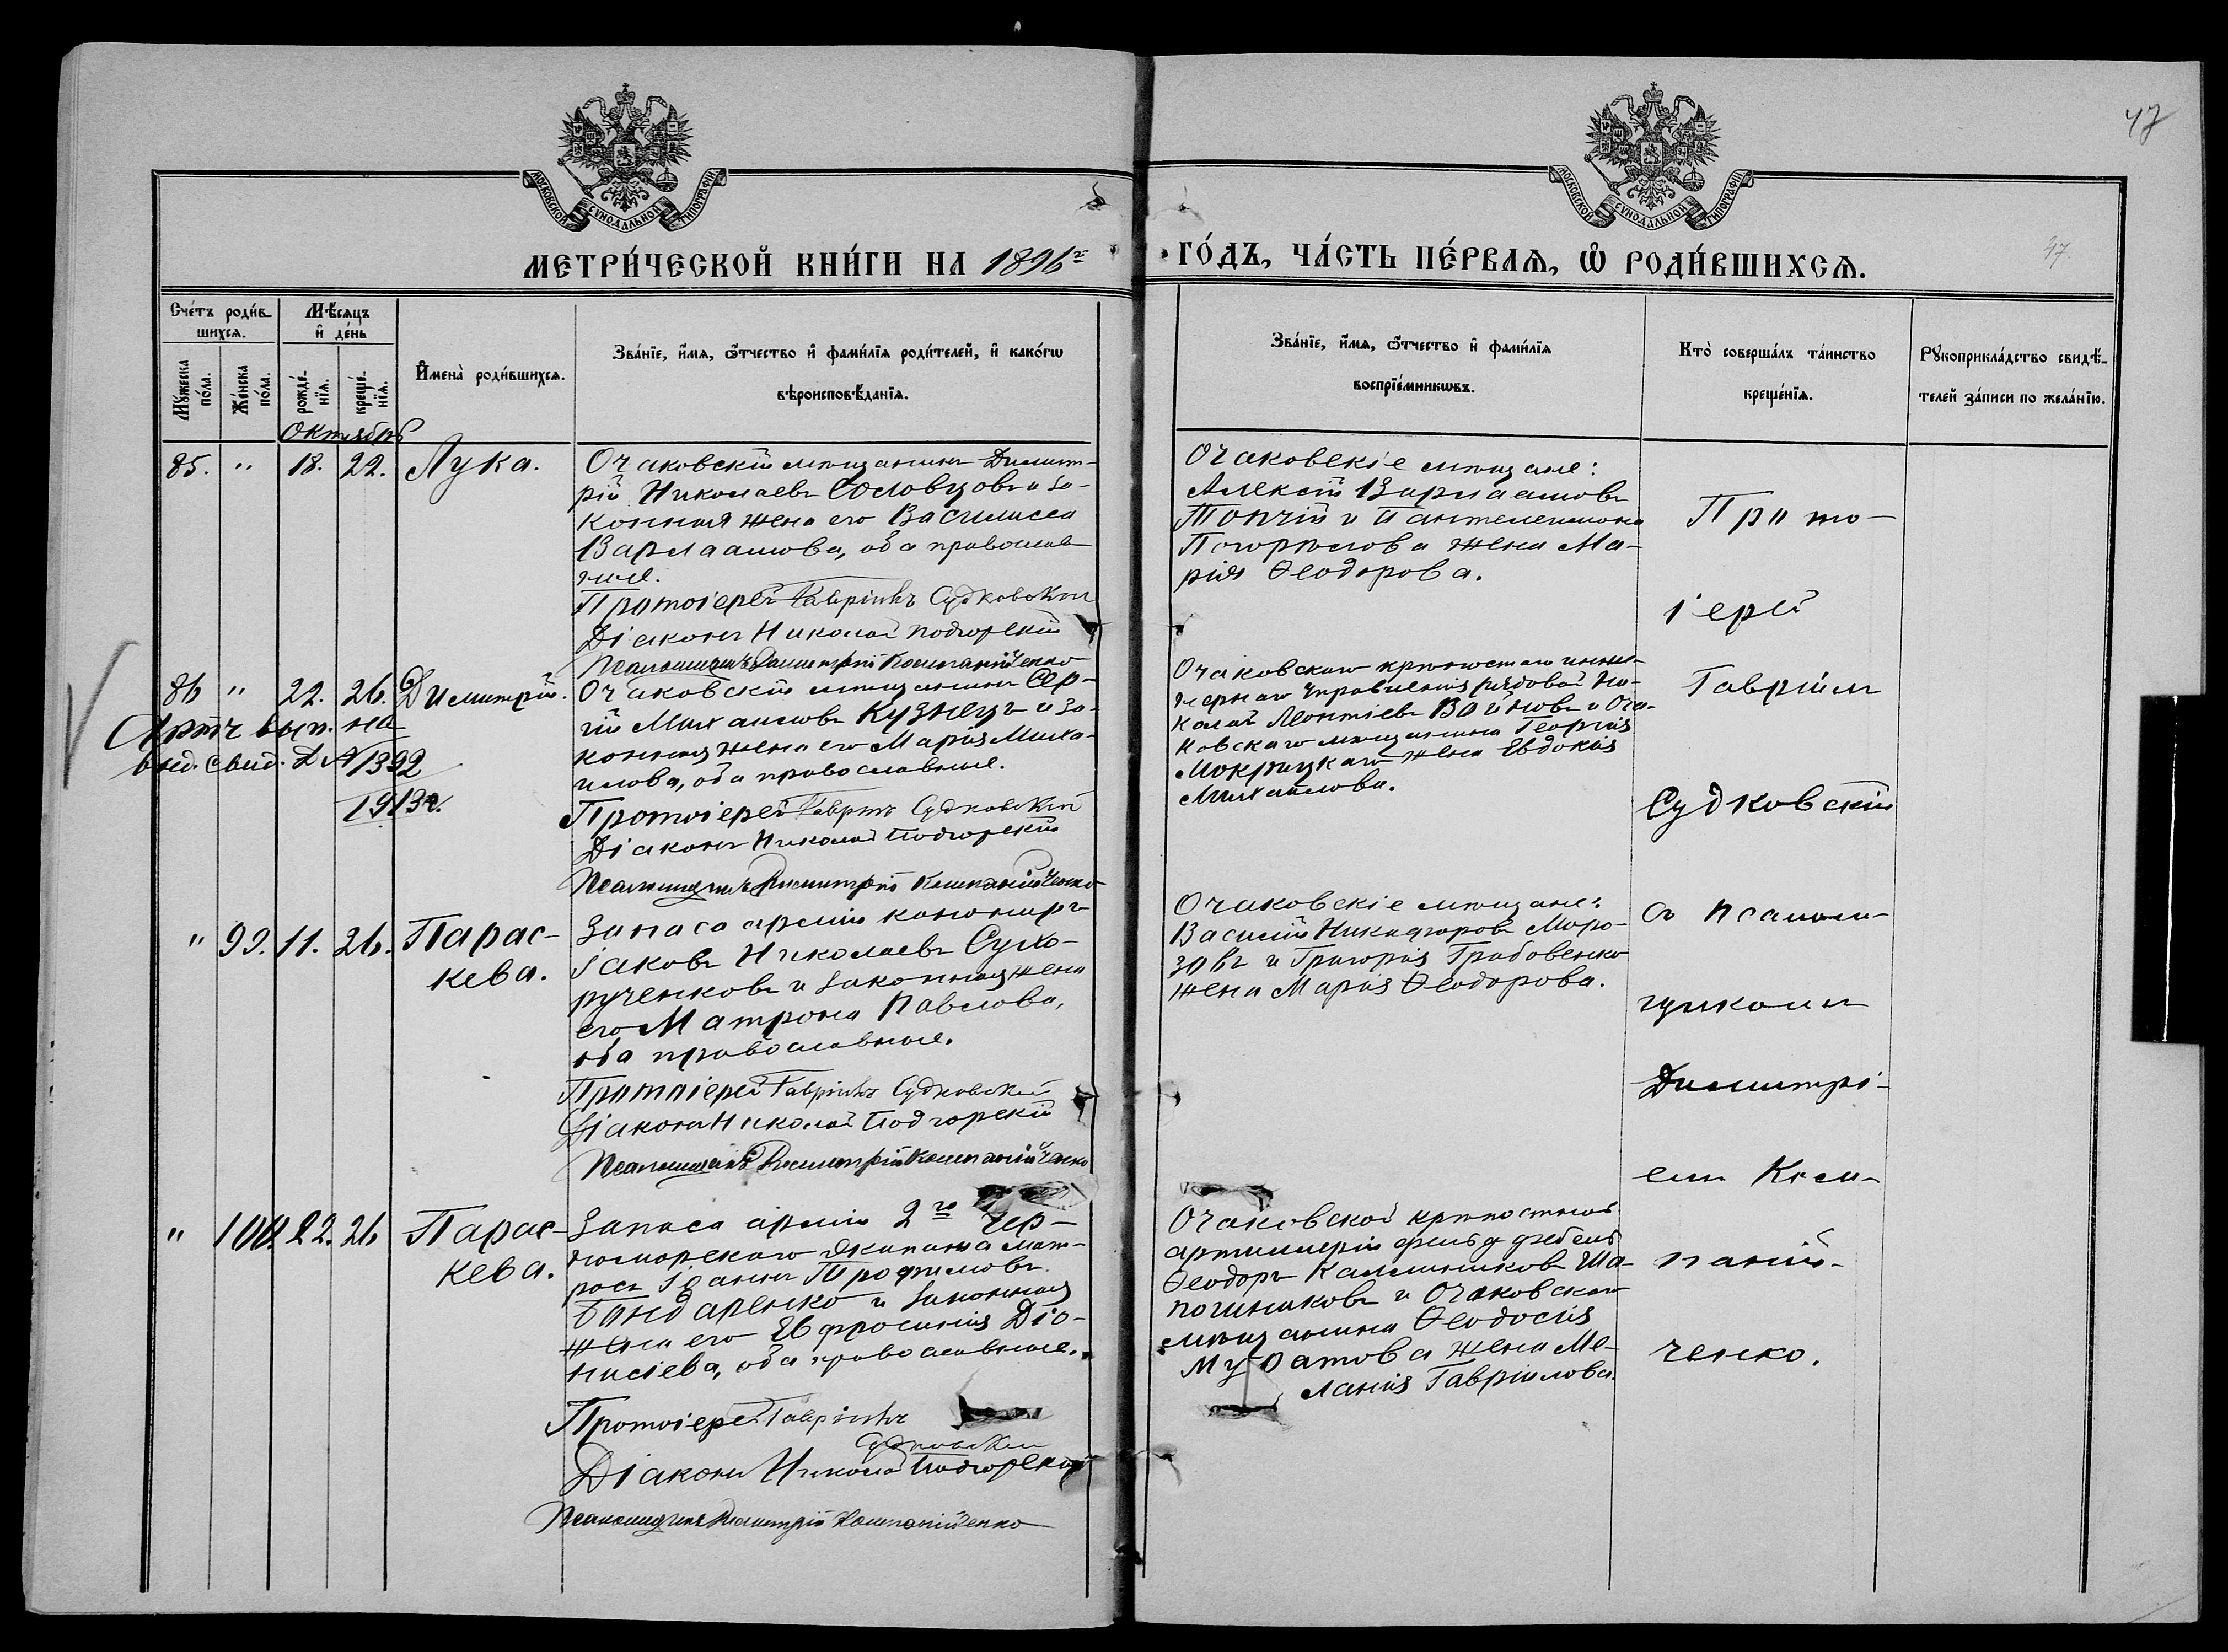 47
МОСКОВСКОЙ СУНОДАЛЬНОЙ ТИПОГРАФІИ
МОСКОВСКОЙ СУНОДАЛЬНОЙ ТИПОГРАФІИ
МЕТРИ́ЧЕСКОЙ КНИ́ГИ НА 1896 г
ГО́ДЪ, ЧА́СТЬ ПЕ́РВАѦ, Ѡ РОДИ́ВШИХСѦ.
47.
Сче́тъ роди́в-
шихсѧ.
Мѣ́сяцъ
и҆ де́нь
Мꙋ́жеска по́ла.
Же́нска по́ла.
рожде́-нїѧ.
креще́-нїѧ.
И҆мена̀ роди́вшихсѧ.
Зва́нїе, и҆́мѧ, ѻ҆́тчество и҆ фами́лїѧ роди́телей, и҆ како́гѡ
вѣроисповѣ́данїѧ.
Зва́нїе, и҆́мѧ, ѻ҆́тчество и҆ фами́лїѧ
воспрїе́мникѡвъ.
Кто̀ соверша́лъ та́инство
креще́нїѧ.
Рꙋкоприкла́дство свидѣ́-
телей за́писи по жела́нїю.
Октябрь
85. " 18. 22. Лука.
Очаковскій мѣщанинъ Димит-
рій Николаевъ Соловцовъ и за-
конная жена его Василисса
Варлаамова, оба православ
ные.
Протоіерей Гавріилъ Судковскій
Діаконъ Николай Подгорскій
Псаломщикъ Димитрій Компанійченко
Очаковскіе мѣщане:
Алексій Варлаамовъ
Топчій и Пантелеимона
Погорѣлова жена Ма-
рія Ѳеодорова.
86 " 22. 26. Димитрій.
вып. на
выд. свид. 1392
1913 г.
Очаковскій мѣщанинъ Сер-
гій Михаиловъ Кузнецъ и за-
конная жена его Марія Миха-
илова, оба православные.
Протоіерей Гавріилъ Судковскій
Діаконъ Николай Подгорскій
Псаломщикъ Димитрій Компанійченко
Очаковскаго крѣпостнаго инже-
нернаго управленія рядовой Ни-
колай Леонтіевъ Войновъ и Оча-
ковскаго мѣщанина Георгія
Мокрицкаго жена Евдокія
Михаилова.
" 99. 11. 26. Парас-
кева.
Запаса арміи канониръ
Іаковъ Николаевъ Сухо-
рученковъ и законная жена
его Матрона Павлова,
оба православные.
Протоіерей Гавріилъ Судковскій
Діаконъ Николай Подгорскій
Псаломщикъ Димитрій Компанійченко
Очаковскіе мѣщане:
Василій Никифоровъ Моро-
зовъ и Григорія Грабовенко
жена Марія Ѳеодорова.
" 100. 22. 26 Парас-
кева.
Запаса арміи 2го Чер-
номорскаго Экипажа мат-
росъ Іоаннъ Трофимовъ
Бондаренко и законная
жена его Евфросинія Діо-
нисіева, оба православные.
Протоіерей Гавріилъ
Судковскій
Діаконъ Николай Подгорскій
Псаломщикъ Димитрій Компанійченко
Очаковской крѣпостной
артиллеріи фельдфебель
Ѳеодоръ Калинниковъ Ша-
почниковъ и Очаковскаго
мѣщанина Ѳеодосія
Муратова жена Ме-
ланія Гавріилова.
Прото-
іерей
Гавріилъ
Судковскій
съ псалом-
щикомъ
Димитрі-
емъ Ком-
паній-
ченко.